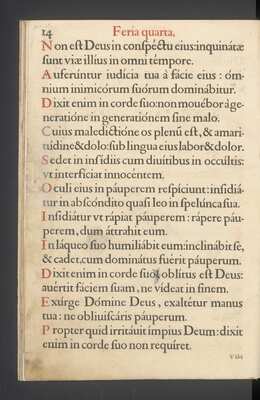 14 Feria quarta.
Non est Deus in conspéctu eius: inquinátæ
sunt viæ illius in omni témpore.
Auferúntur iudícia tua à fácie eius : óm-
nium inimicórum suórum dominábitur.
Dixit enim in corde suo: non mouébor à ge-
neratióne in generatiónem sine malo.
Cuius maledictióne os plenũ est, & amari-
túdine & dolo: sub lingua eius labor & dolor.
Sedet in insídiis cum diuítibus in occúltis:
vt interfíciat innocéntem.
Oculi eius in páuperem respíciunt: insidiá-
tur in abscóndito quasi leo in spelúnca sua.
Insidiátur vt rápiat páuperem : rápere páu-
perem, dum áttrahit eum.
In láqueo suo humiliábit eum: inclinábit se,
& cadet, cum dominátus fúerit páuperum.
Dixit enim in corde suo, oblítus est Deus:
auértit fáciem suam, ne vídeat in finem.
Exúrge Dómine Deus, exaltétur manus
tua : ne obliuiscáris páuperum.
Propter quid irritáuit ímpius Deum: dixit
enim in corde suo non requíret.